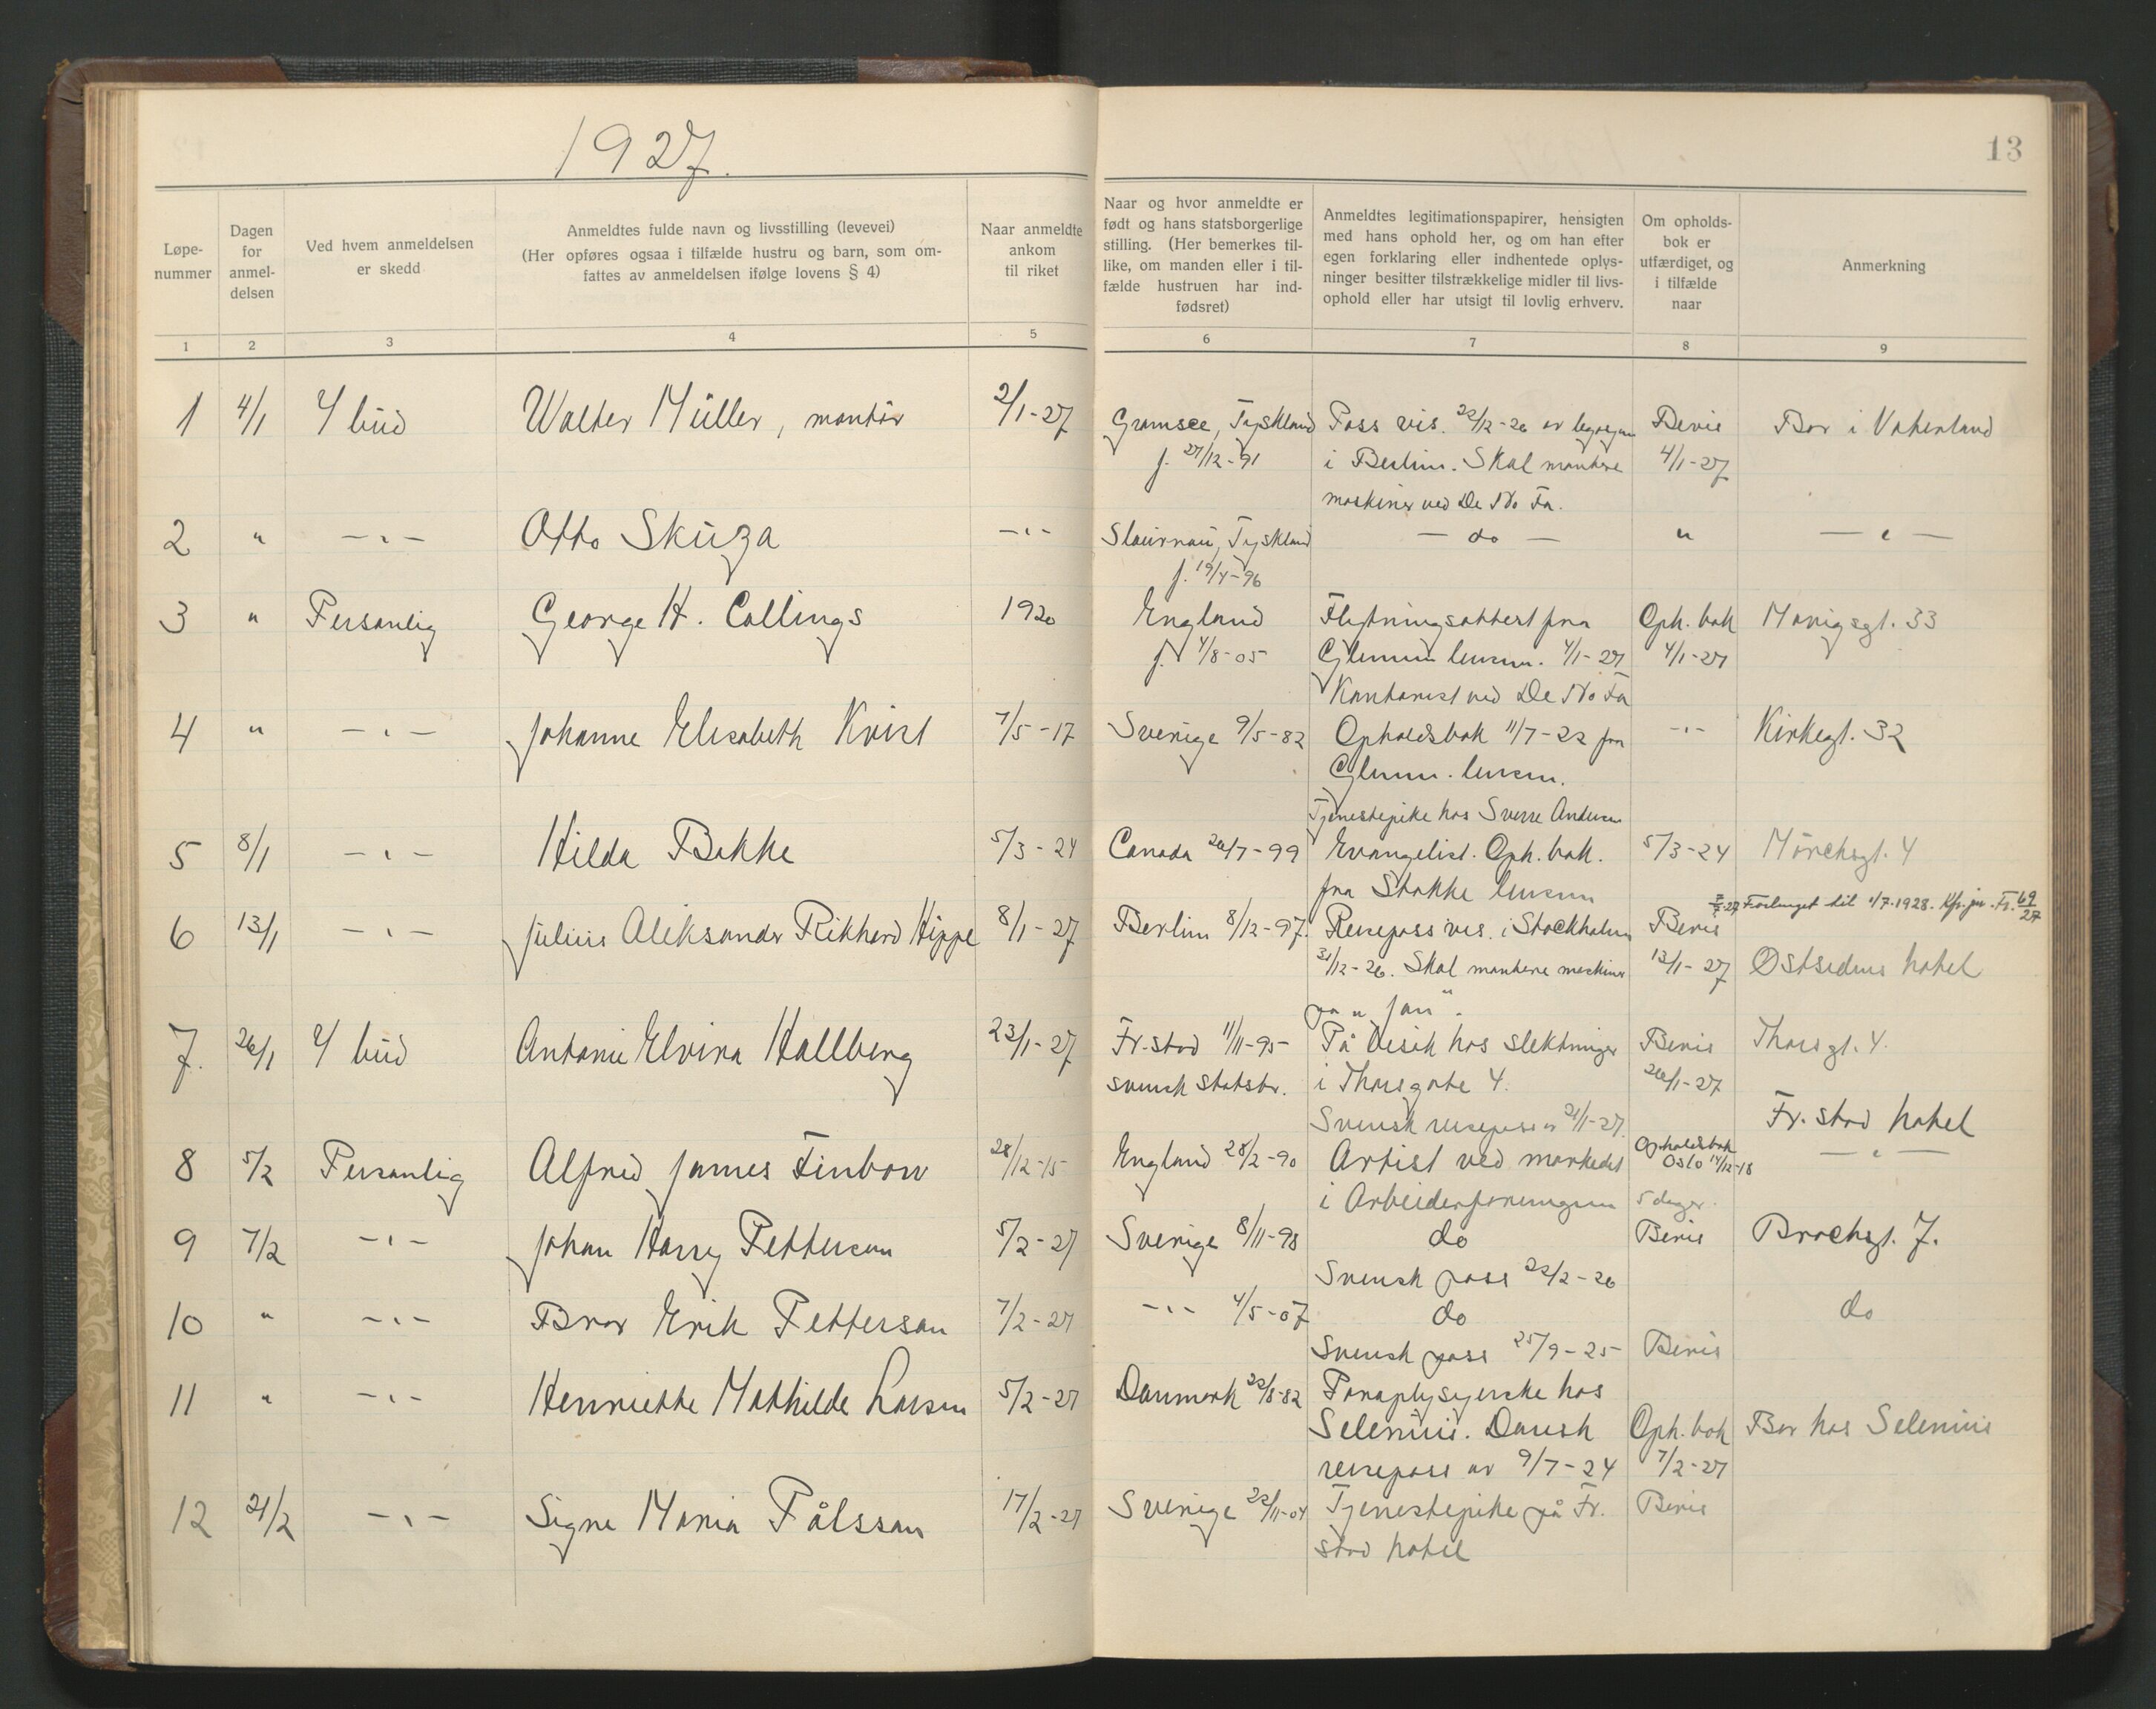 1927.
13
Løpe-
nummer
Dagen
for
anmel-
delsen
Ved hvem anmeldelsen
er skedd
Anmeldtes fulde navn og livsstilling (levevei)
(Her opføres ogsaa i tilfælde hustru og barn, som om-
fattes av anmeldelsen ifølge lovens § 4)
Naar anmeldte
ankom
til riket
Naar og hvor anmeldte er
født og hans statsborgerlige
stilling. (Her bemerkes til-
like, om manden eller i til-
fælde hustruen har ind-
fødsret)
Anmeldtes legitimationspapirer, hensigten
med hans ophold her, og om han efter
egen forklaring eller indhentede oplys-
ninger besitter tilstrækkelige midler til livs-
ophold eller har utsigt til lovlig erhverv.
Om opholds-
bok er
utfærdiget, og
i tilfælde
naar
Anmerkning
1 2 3 4 5 6 7 8 9
1 4/1 Walter Müller, montør 2/1-27 Gramsee, Tyskland Pass vis. 22/12-26 av Bevis Bor i Vaterland
f. 27/12-91 i Berlin. Skal montere 4/1-27
maskiner ved De No Fa.
2 " -"- Otto Skuza -"- Tyskland - do - " - " -
f. 19/4-96
3 " Personlig George H. Collings 1920 England Flytningsattest fra Oph. bok 33
f. 4/8-05 Glemmen lensm. 4/1-27 4/1-27
Kontorist ved De No Fa
4 " -"- Johanne Elisabeth Kvist 7/5-17 Sverige 9/5-82 Opholdsbok 11/7-22 fra -"- Kirkegt. 32
Glemm. lensm.
Tjenestepike hos Sverre Andersen
5 8/1 -"- Hilda Bakke 5/3-24 Canada 26/7-99 Evangelist. Oph. bok. 5/3-24 Mørchsgt. 4
fra Stokke lensm
Forlenget til 1/7-1928. Kfr. jr. Fr. 69/27
6 13/1 -"- Julius Aleksander Rikhard Hippe 8/1-27 Berlin 8/12-97. Reisepass vis. i Stockholm Bevis
31/12-26. Skal montere maskiner 13/1-27 Østsidens hotel
på "Jan".
7. 26/1 Antonie Elvira Hallberg 23/1-27 Fr.stad 11/11-95 På visit hos slektninger Bevis Thorsgt. 4.
svensk statsbr. i Thorsgate 4. 26/1-27
Svensk reisepass av 21/1-27. Fr. stad hotel
8 5/2 Personlig Alfred James Finbow 28/12-15 England 28/2-90 Artist ved markedet Opholdsbok Oslo 14/12-18 - " -
i Arbeiderforeningen 5 dager.
9 7/2 -"- Johan Harry Pettersson 5/2-27 Sverige 8/11-98 do Bevis Brochsgt. 7.
Svensk pass 22/2-26
10 " -"- Bror Erik Pettersson 7/2-27 -"- 4/5-07 do do
Svensk pass 25/9-25 Bevis
11 " -"- Henriette Mathilde Larsen 5/2-27 Danmark 22/8-82 Paraplysyerske hos
Selenius. Dansk Oph. bok Bor hos Selenius
reisepass av 9/7-24 7/2-27
12 21/2 -"- Signe Maria Pålsson 17/2-27 Sverige 22/11-04 Tjenestepike på Fr. Bevis
stad hotel